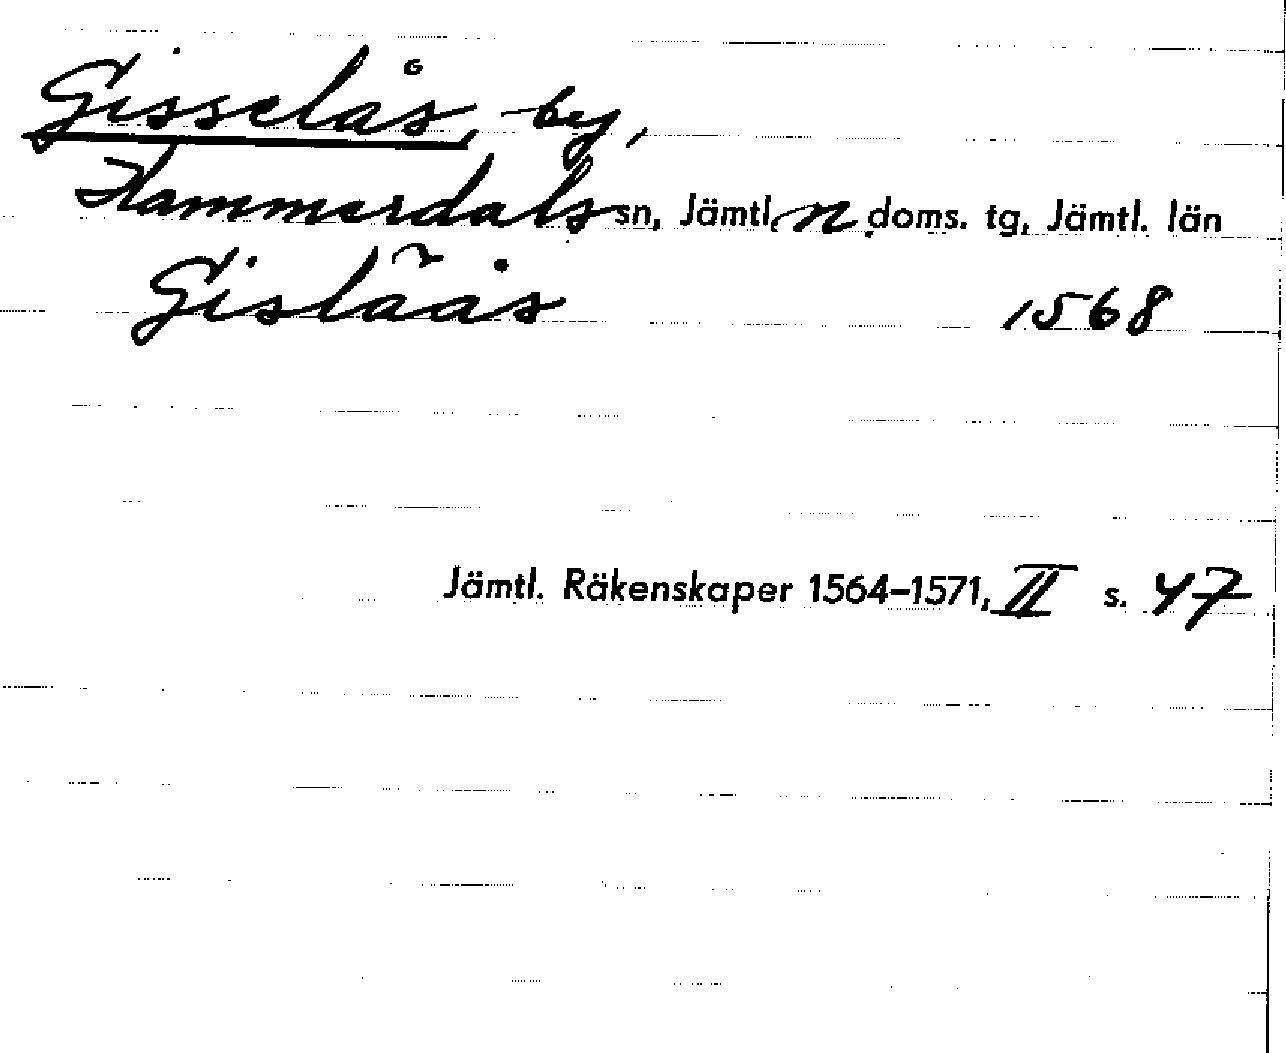 Gisselås, by,
Hammerdals sn, Jämtl. n. doms. tg, Jämtl. län
Gislåås 1568
Jämtl. Räkenskaper 1564–1571, II s. 47